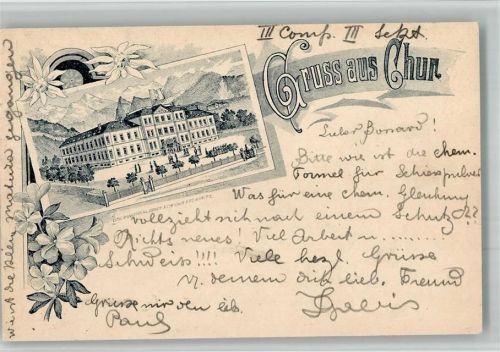 III Comp. III Sept.
Gruss aus Chur.
Lieber Bossard!
Bitte wie ist die chem.
Formel für Schiesspulver
Was für eine chem. Gleichung
vollzieht sich nach einem Schutz??
Nichts neues! Viel Arbeit u.
Schweiss!!!! Viele herzl. Grüsse
v. deinem dich lieb. Freund
Grüsse mir den lb.
Paul
wie ist die Matura gegangen